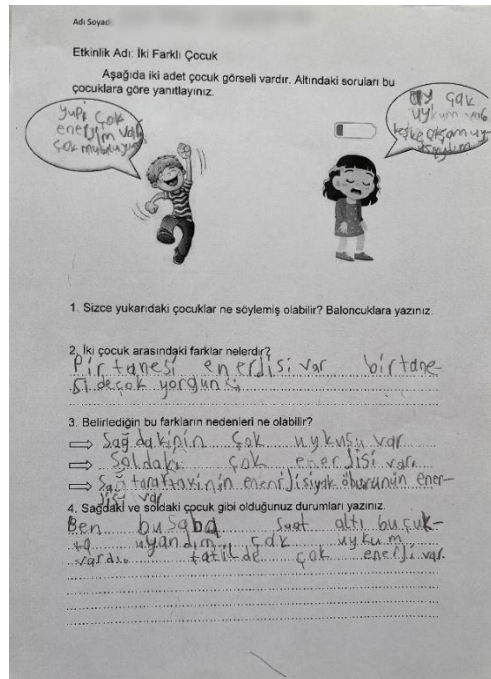 Adı Soyadı
Etkinlik Adı: İki Farklı Çocuk
Aşağıda iki adet çocuk görseli vardır. Altındaki soruları bu
çocuklara göre yanıtlayınız.
yupi çok
enerjim var
çok mutluyum
ay çok
uykum var
keşke akşam uy-
saydım
1. Sizce yukarıdaki çocuklar ne söylemiş olabilir? Baloncuklara yazınız.
2. İki çocuk arasındaki farklar nelerdir?
Pirtanesi enerjisi var birtane-
si de çok yorgun
3. Belirlediğin bu farkların nedenleri ne olabilir?
Sağdakinin çok uykusu var
Soldaki çok enerjisi var.
Sağ taraftakinin enerjisi yok öbürünün ener-
jisi var
4. Sağdaki ve soldaki çocuk gibi olduğunuz durumları yazınız.
Ben bu saba saat altı buçuk-
ta uyandım çok uykum
vardı. tatilde çok enerji var.